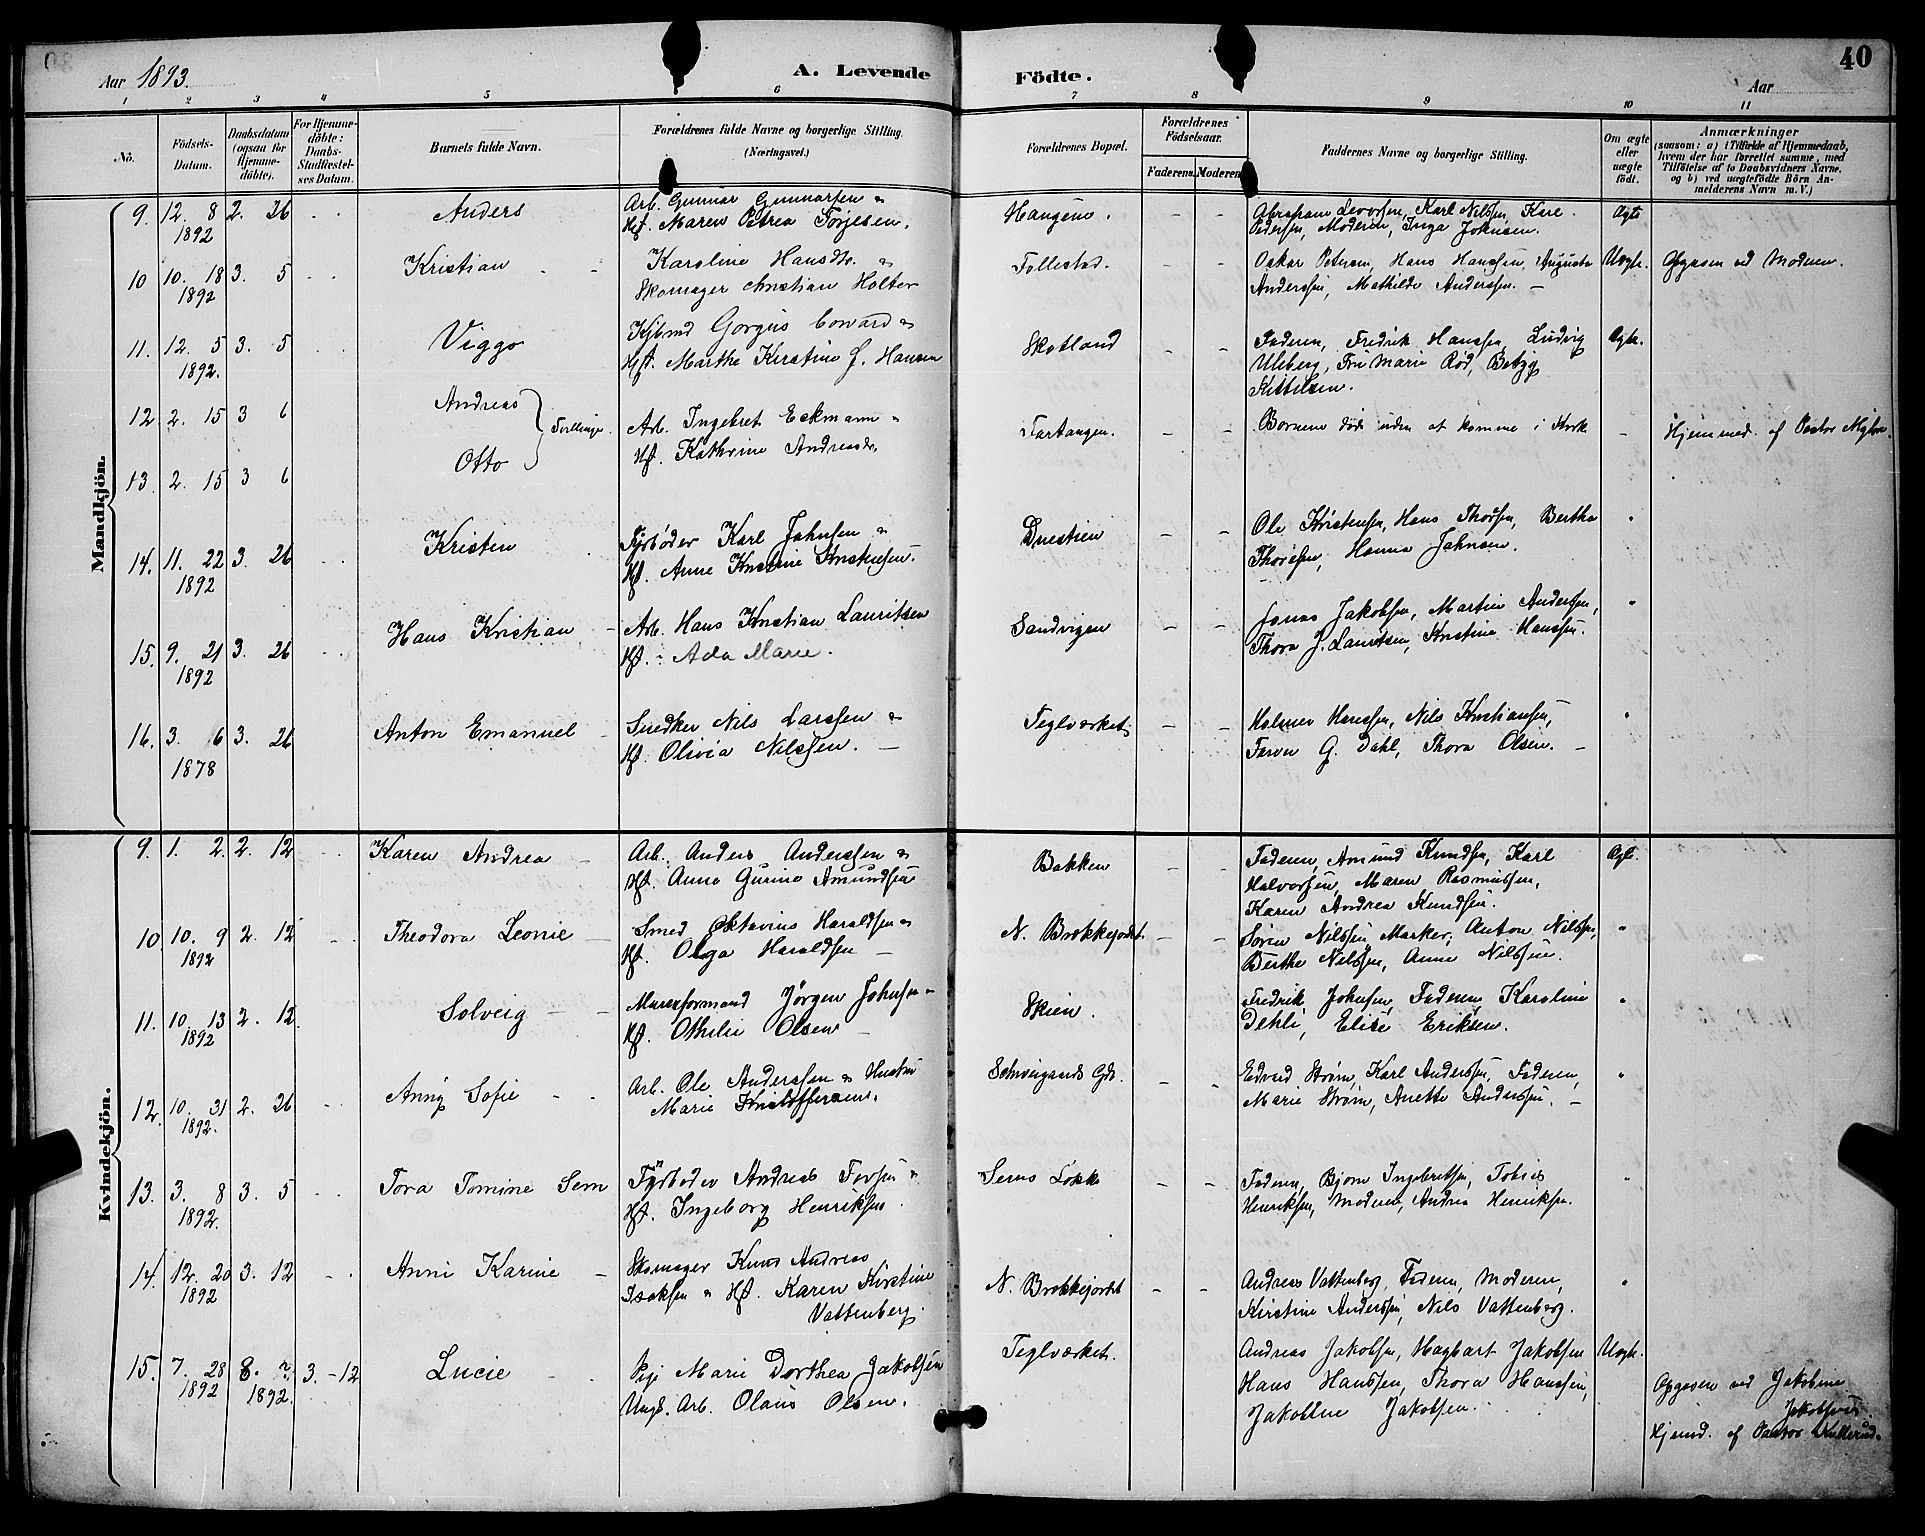 Aar 1893.
A. Levende
Födte.
Aar
40
1 2 3 4 5 6 7 8 9 10 11
No.
Födsels-Datum.
Daabsdatum (ogsaa for Hjemme-döbte).
For Hjemme-döbte: Daabs-Stadfæstel-ses Datum.
Barnets fulde Navn.
Forældrenes fulde Navne og borgerlige Stilling.
(Næringsvei.)
Forældrenes Bopæl.
Forældrenes Födselsaar.
Faderens. Moderens
Faddernes Navne og borgerlige Stilling.
Om ægte eller uægte födt.
Anmærkninger
(saasom: a) i Tilfælde af Hjemmedaab, hvem der har forrettet samme, med Tilföielse af to Daabsvidners Navne. og b) ved uægtefödte Börn An-melderens Navn m. V.)
Mandkjön.
9. 12. 8 1892 2. 26 Anders Arb. Gunnar Gunnarsen &
Hf. Maren Petrea Torjesen. Haugene. Abraham Levorsen, Karl Nilssen, Karl
Pedersen, Moderen, Inga Johnsen. Ægte
10 10. 18 1892 3. 5 Kristian Karoline Hansdtr. &
Skomager Christian Holter Follestad. Oskar Petersen, Hans Hanssen, Augusta
Anderssen, Mathilde Anderssen. Uægte. Opgiven ved Moderen.
11. 12. 5 1892. 3. 5 Viggo Kjøbmd Gorgus Coward &
Hf. Marthe Kirstine G. Hansen Skotland Faderen, Fredrik Hanssen, Ludvig
Uleberg, Fru Marie Rød, Betzy
Kittilsen. Ægte.
12 2. 15 3 6 Andreas Tvillinge. Arb. Ingebret Eckmann &
Hf. Kathrine Andreasdtr. Tartangen. Børnene døde uden at komme i Kirke Hjemmed. af Pastor
13. 2. 15 3 6 Otto
14. 11. 22 1892 3. 26 Kristen Fyrbøder Karl Johnsen &
Hf. Anne Kristine Kristensen. Duestien Ole Kristensen, Hans Thorsen, Bertha
Thorsen, Hanna Johnsen. "
15. 9. 21 1892 3. 26 Hans Kristian Arb. Hans Kristian Lauritsen
Hf. Ada Marie. Sandvigen Jonas Jakobsen, Martin Andersen,
Thora J. Lauritsen, Kristine Hanssen. "
16. 3. 6 1878 3. 26 Anton Emanuel Snedker Nils Larssen &
Hf. Olivia Nilssen. Teglværket Halmer Hanssen, Nils Kristiansen,
G. Dahl, Thora Olsen. "
Kvindekjön.
9. 1. 2. 2. 12 Karen Andrea Arb. Anders Anderssen &
Hf. Anne Gurine Amundsen Bakken Faderen, Amund Knudsen, Karl
Halvorsen, Maren Rasmussen,
Karen Andrea Knudsen. Ægte.
10 10. 9 1892 2. 12 Theodora Leonie Smed Oktavius Haraldsen &
Hf. Olga Haraldsen N. Brekkejordet Søren Nilssen Marker, Anton Nilssen,
Berthe Nilssen, Anne Nilssen. "
11. 10. 13 1892 2. 12 Solveig Murerformand Jørgen Johnsen &
Hf. Othilie Olsen Skien. Fredrik Johnsen, Faderen, Karoline
Dehli, Elise Eriksen. "
12. 10. 31 1892. 2. 26 Anny Sofie Arb. Ole Anderssen & Hustru
Marie Kristoffersen. Schweigaards Gd. Edvard Strøm, Karl Anderssen, Faderen,
Marie Strøm, Anette Anderssen. "
13. 3. 8 1892. 3. 5 Tora Tomine Sem Fyrbøder Andreas &
Hf. Ingeborg Henriksen. Sems Løkke Faderen, Bjørn Ingebretsen, Tobias
Henriksen, Moderen, Andrea Henriksen. "
14. 12. 20 1892 3. 12 Anni Karine Skomager Knut Andreas
Isaksen & Hf. Karen Kirstine
Vattenberg. N. Brekkejordet Andreas Vattenberg, Faderen, Moderen,
Kirstine Anderssen, Nils Vattenberg. "
15. 7. 28 1892 8. ? 1892. 3. -12 Lucie Pige Marie Dorthea Jakobsen
Ungk. Arb. Olaus Olsen. Teglværket. Andreas Jakobsen, Hagbart Jakobsen
Hans Hanssen, Thora Hanssen,
Jakobine Jakobsen. Uægte. Opgiven ved Jakobine
Jakobsen
Hjemd. af Pastor Kullerud.